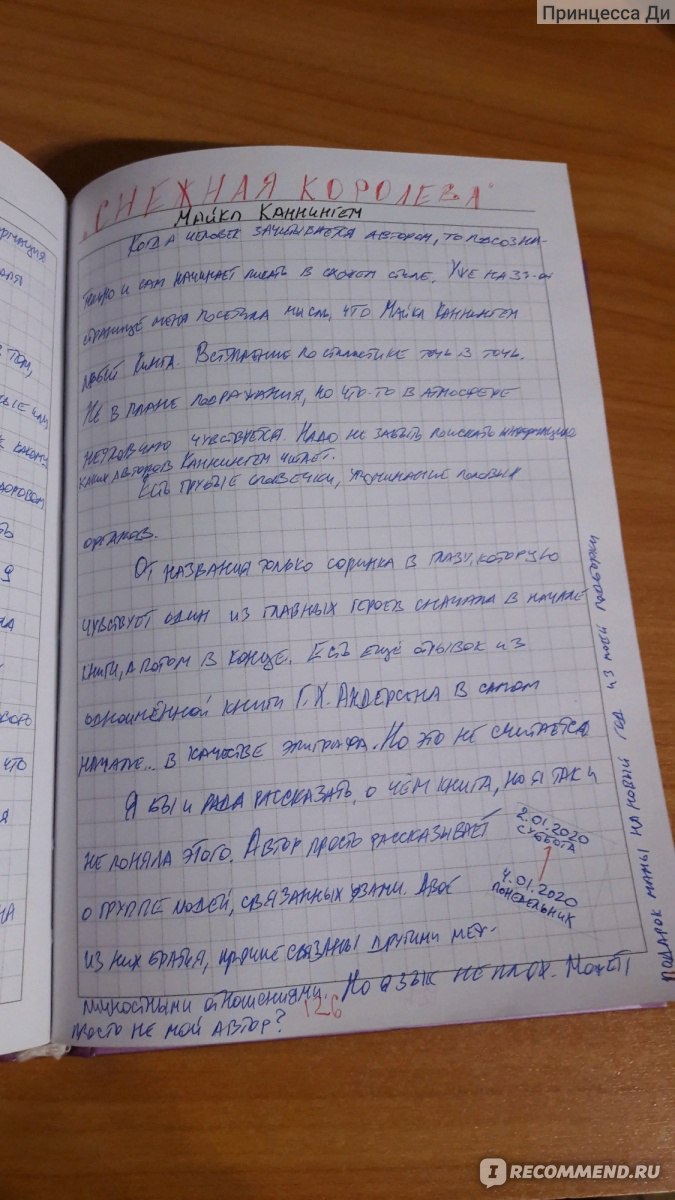 Принцесса Ди
„СНЕЖНАЯ КОРОЛЕВА"
МАЙКЛ КАННИНГЕМ
КОГДА ЧЕЛОВЕК ЗАЧИТЫВАЕТСЯ АВТОРОМ, ТО
И САМ НАЧИНАЕТ ПИСАТЬ В СХОЖЕМ СТИЛЕ. УЖЕ НА
СТРАНИЦЕ МЕНЯ ПОСЕТИЛА МЫСЛЬ, ЧТО МАЙКЛ КАННИНГЕМ
ЛЮБИТ КИНГА. ВСТУПЛЕНИЕ ПО СТИЛИСТИКЕ ТОЧЬ В ТОЧЬ.
НЕ В ПЛАНЕ ПОДРАЖАНИЯ, НО ЧТО-ТО В АТМОСФЕРЕ
ЧУВСТВУЕТСЯ. НАДО НЕ ЗАБЫТЬ ПОИСКАТЬ ИНФОРМАЦИЮ
КАКИХ АВТОРОВ КАННИНГЕМ ЧИТАЕТ.
ЕСТЬ ГРУБЫЕ СЛОВЕЧКИ, УПОМИНАНИЕ ПОЛОВЫХ
ОРГАНОВ.
ОТ НАЗВАНИЯ ТОЛЬКО СОРИНКА В ГЛАЗУ, КОТОРУЮ
ЧУВСТВУЕТ ОДИН ИЗ ГЛАВНЫХ ГЕРОЕВ СНАЧАЛА В НАЧАЛЕ
КНИГИ, А ПОТОМ В КОНЦЕ. ЕСТЬ ЕЩЁ ОТРЫВОК ИЗ
ОДНОИМЁННОЙ КНИГИ Г.Х. АНДЕРСЕНА В САМОМ
НАЧАЛЕ... В КАЧЕСТВЕ ЭПИГРАФА. НО ЭТО НЕ СЧИТАЕТСЯ
Я БЫ И РАДА РАССКАЗАТЬ, О ЧЁМ КНИГА, НО Я ТАК И
НЕ ПОНЯЛА ЭТОГО. АВТОР ПРОСТО РАССКАЗЫВАЕТ
О ГРУППЕ ЛЮДЕЙ, СВЯЗАННЫХ УЗАМИ. ДВОЕ
ИЗ НИХ БРАТЬЯ, ПРОЧИЕ СВЯЗАНЫ ДРУГИМИ МЕЖ-
ЛИЧНОСТНЫМИ ОТНОШЕНИЯМИ. НО ЯЗЫК НЕ ПЛОХ. МОЖЕТ
ПРОСТО НЕ МОЙ АВТОР?
126
2.01.2020
СУББОТА
4.01.2020
ПОНЕДЕЛЬНИК
ПОДАРОК МАМЫ НА НОВЫЙ ГОД ИЗ МОЕЙ ПОДБОРКИ
ТОМ,
КАКОМУ
ЧТО
НА
IRECOMMEND.RU